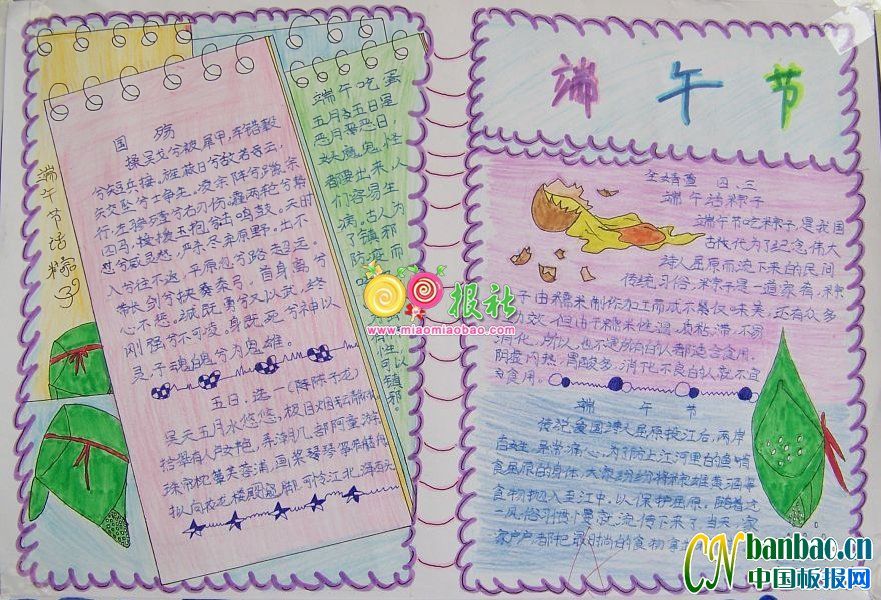 端午节
端午节话粽子
国殇
操吴戈兮被犀甲,车错毂
兮短兵接。旌蔽日兮敌若云,
矢交坠兮士争先。凌余阵兮躐余
行,左骖殪兮右刃伤。霾两轮兮絷
四马,援玉枹兮击鸣鼓。天时
怼兮威灵怒,严杀尽兮弃原野。出不
入兮往不返,平原忽兮路超远。
带长剑兮挟秦弓,首身离兮
心不惩。诚既勇兮又以武,终
刚强兮不可凌。身既死兮神以
灵,子魂魄兮为鬼雄。
五日
吴天五月水悠悠,极目烟云静
端午吃蛋
五月五日是
恶月恶日
妖魔鬼怪
都要出来人
们容易生
病,古人为
了镇邪
防疫而
可以
镇邪。
报社
www.miaomiaobao.com
四、三
端午话粽子
端午节吃粽子,是我国
古代为了纪念伟大
诗人屈原而流下来的民间
传统习俗,粽子是一道家肴,粽
子由糯米制作加工而成不累仅味美,还有众多
功效,但由于糯米性温,质粘滞,不易
消化,所以,也不是所有的人都适合食用。
阴虚内热,胃酸多,消化不良的人就不宜
多食用。
端午节
传说爱国诗人屈原投江后,两岸
百姓,非常痛心,为了防止江河里的鱼啃
食屈原的身体,大家纷纷将粽雄黄酒等
食物抛入至江中,以保护屈原。随着这
一风俗习惯下要就流传下来了当天,家
家户户都把最时尚的食物拿
CN banbao.cn
中国板报网